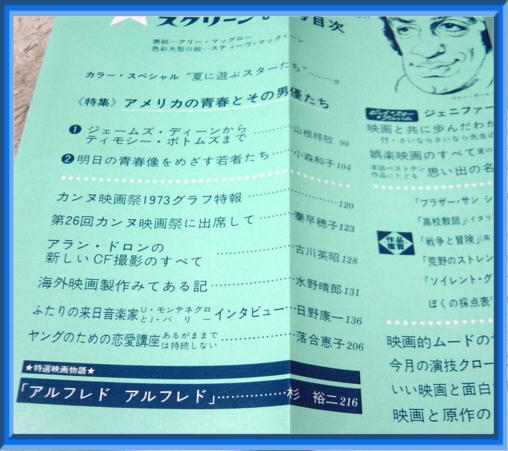 スクリーン
目次
表紙…アリー・マッグロー
色彩大型口絵…スティーヴ・マックィーン
カラー・スペシャル "夏に遊ぶスターたち"………9
《特集》アメリカの青春とその男優たち
❶ ジェームズ・ディーンから
ティモシー・ボトムズまで………山根祥敬 99
❷ 明日の青春像をめざす若者たち…小森和子 104
カンヌ映画祭1973グラフ特報………120
第26回カンヌ映画祭に出席して………秦早穂子 123
アラン・ドロンの
新しいCF撮影のすべて………古川英昭 128
海外映画製作みてある記………水野晴郎 131
ふたりの来日音楽家 U・モンテネグロとJ・バリー インタビュー…日野康一 136
ヤングのための恋愛講座 あるがままでは持続しない………落合恵子 206
★特選映画物語★
「アルフレド アルフレド」………杉 裕二 216
ジェニファー
映画と共に歩んだわが
付・さいならさいなら先生
娯楽映画のすべて
本誌ベストテン
作品にたどる 思い出の名
「ブラザー・サン シ
「高校教師」イタリ
作品鑑賞
「戦争と冒険」
「荒野のストレン
「ソイレント・グ
ぼくの採点表
映画的ムードの
今月の演技クロー
いい映画と面白
映画と原作の